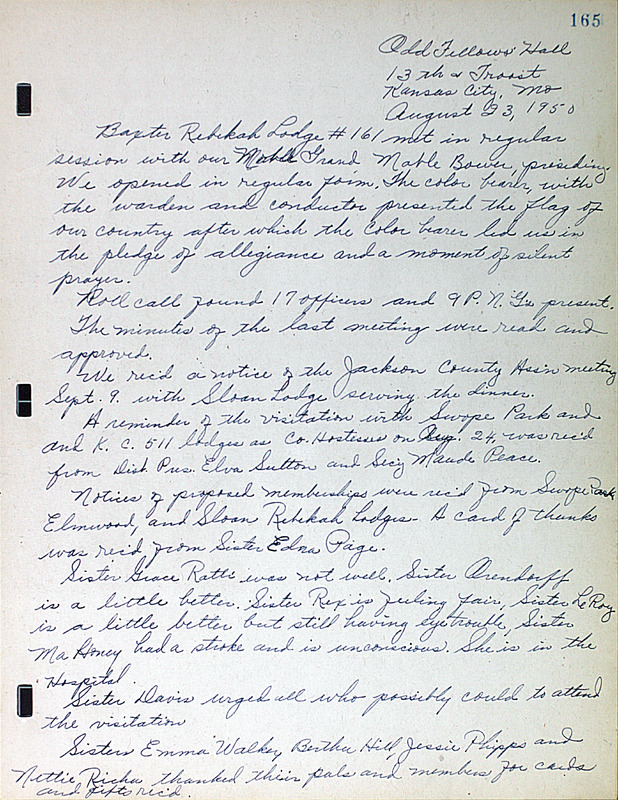 165
Odd Fellows' Hall
13th & Troost
Kansas City, Mo
August 23, 1950
Baxter Rebekah Lodge #161 met in regular
session with our Noble Grand Mable Bower, presiding
We opened in regular form. The color bearer, with
the warden and conductor presented the flag of
our country after which the color bearer led us in
the pledge of allegiance and a moment of silent
prayer.
Roll call found 17 officers and 9 P. N. G's present.
The minutes of the last meeting were read and
approved.
We rec'd a notice of the Jackson County Ass'n meeting
Sept. 9. with Sloan Lodge serving the dinner.
A reminder of the visitation with Swope Park and
and K. C. 511 lodges as Co. Hostesses on Aug. 24, was rec'd
from Dist. Pres. Elva Sutton and Sec'y Maude Peace.
Notices of proposed memberships were rec'd from Swope Park
Elmwood, and Sloan Rebekah Lodges - A card of thanks
was rec'd from Sister Edna Page.
Sister Grace Ratti was not well, Sister Orendorff
is a little better. Sister Rex is feeling fair, Sister LeRoy
is a little better but still having eye trouble, Sister
MaHoney had a stroke and is unconscious. She is in the
Hospital.
Sister Davis urged all who possibly could to attend
the visitation
Sisters Emma Walker, Bertha Hill, Jessie Phipps and
Nettie Richa thanked their pals and members for cards
and gifts rec'd.